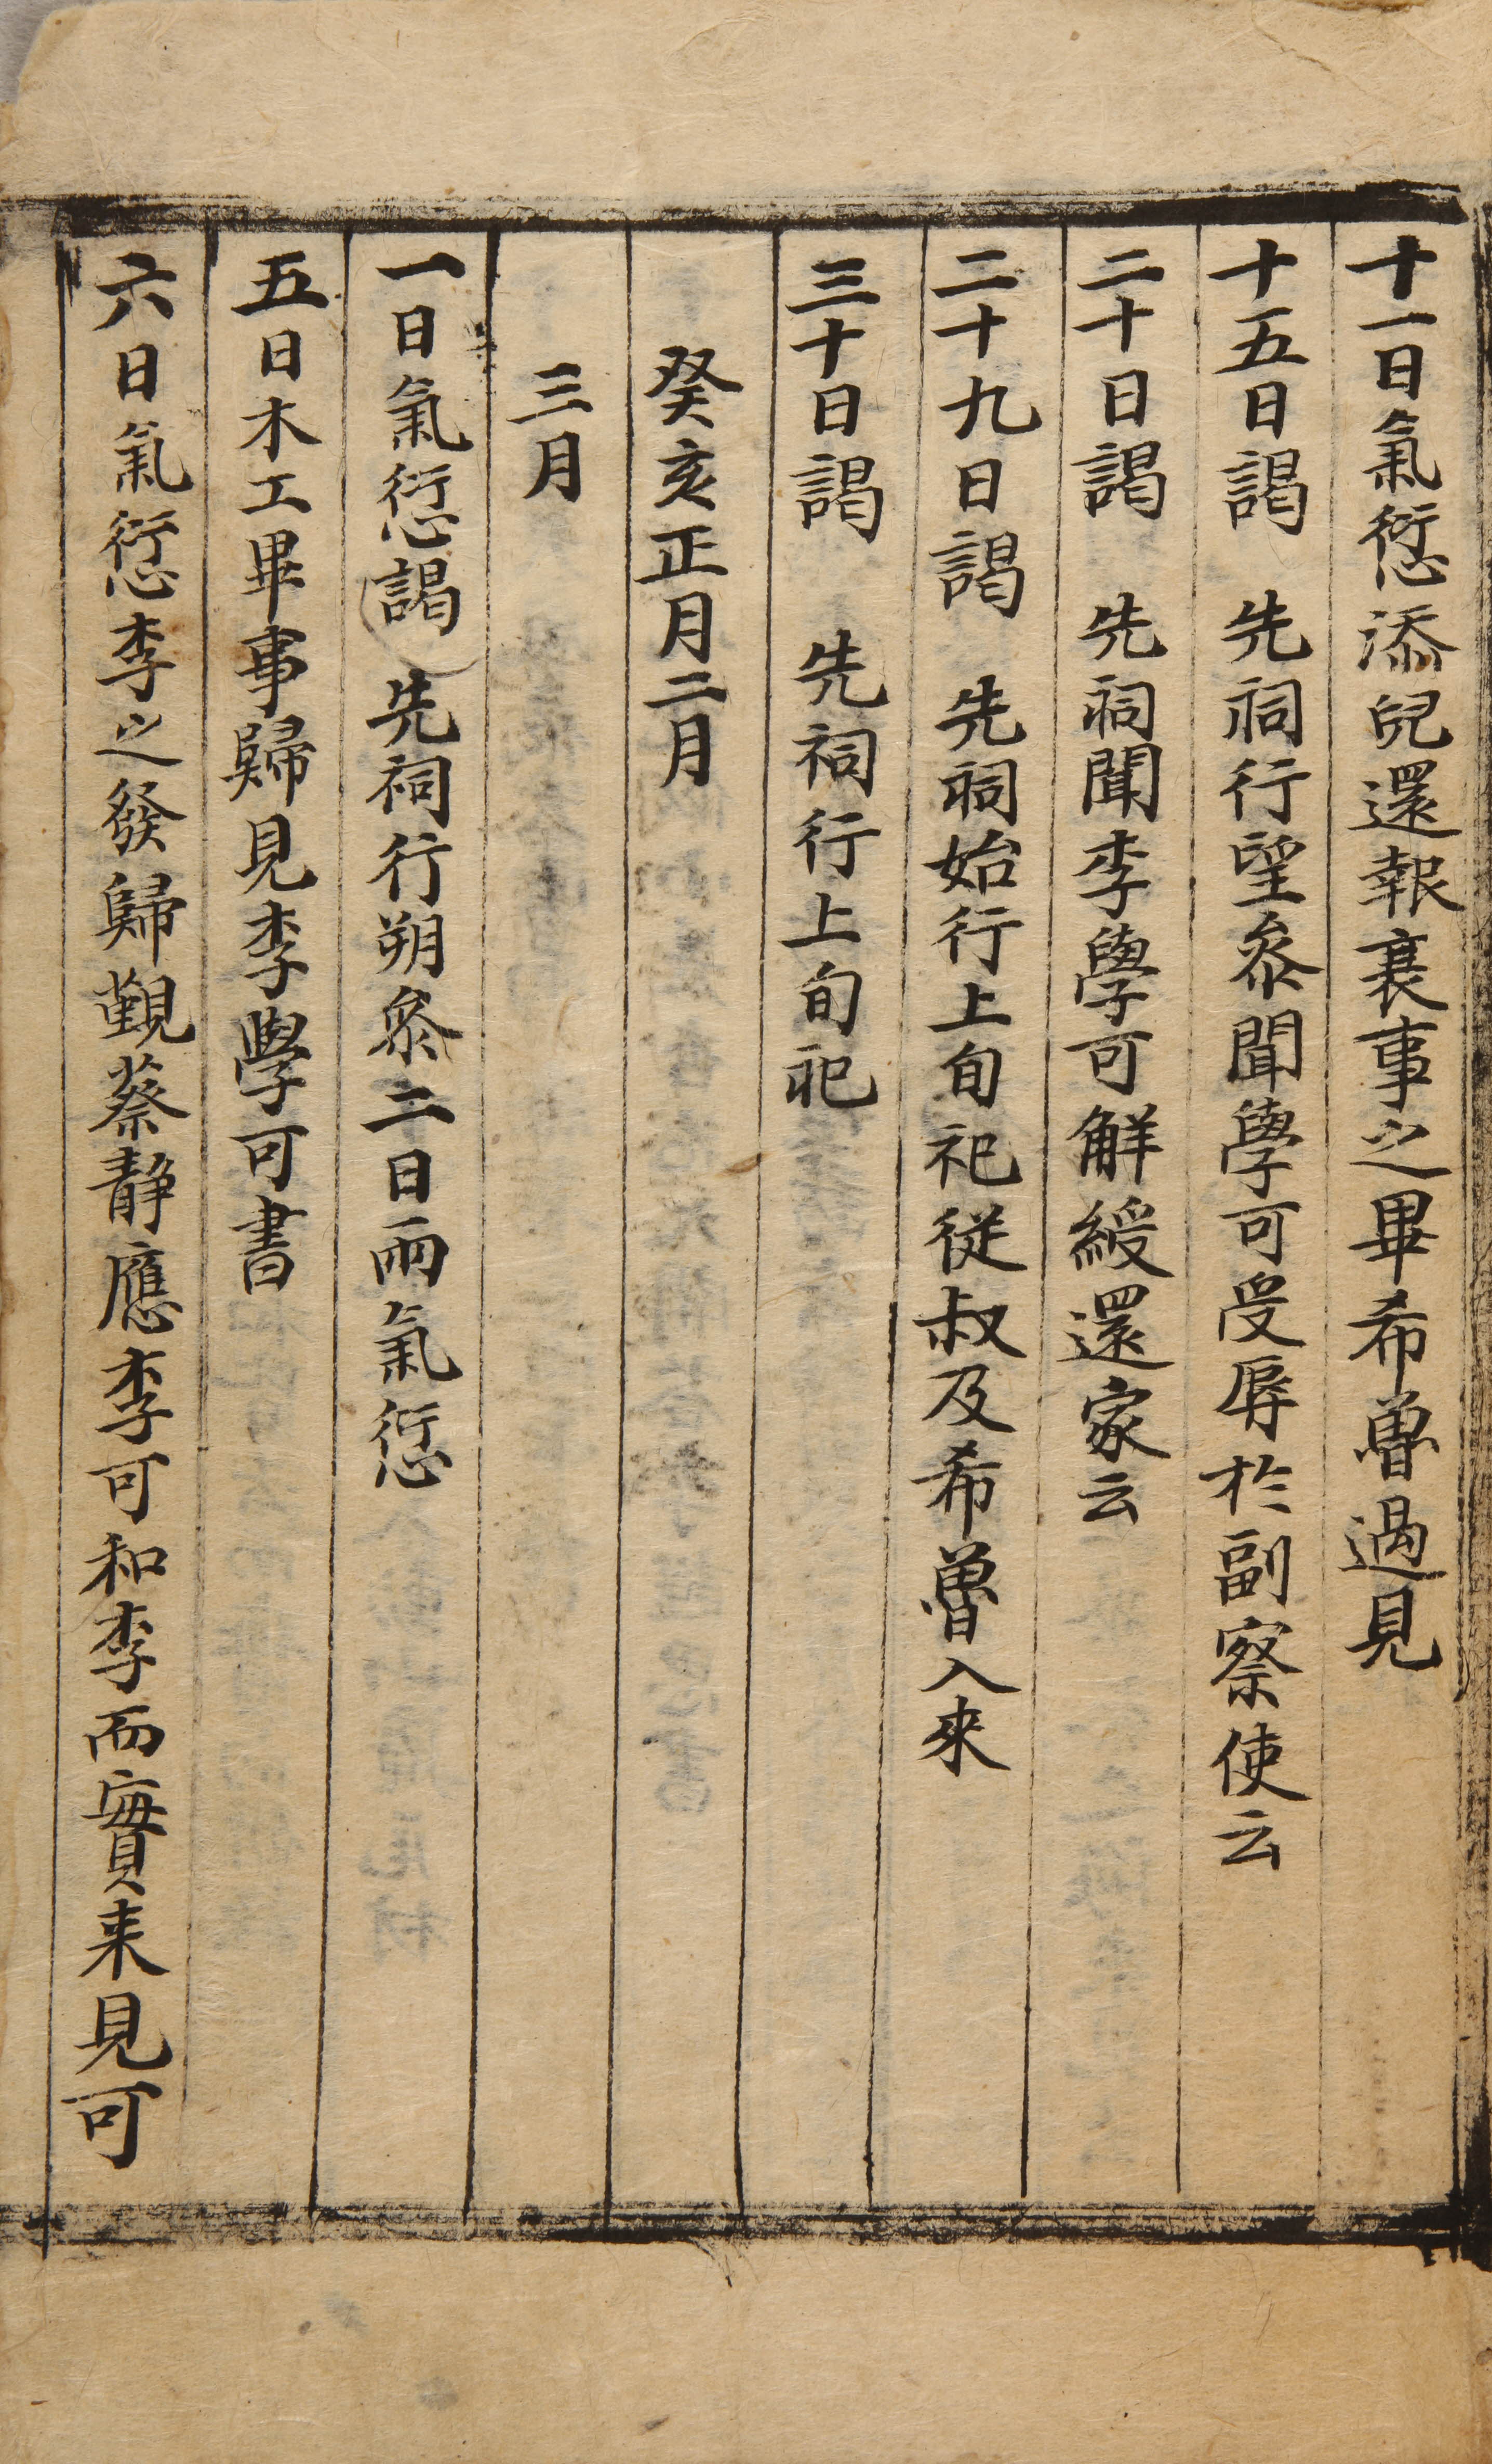 十一日氣愆添兒還報襄事之畢希魯過見
十五日謁 先祠行望叅聞學可受辱於副察使云
二十日謁 先祠聞李學可解綬還家云
二十九日謁 先祠始行上旬祀從叔及希魯入來
三十日謁 先祠行上旬祀
癸亥正月二月
三月
一日氣愆謁 先祠行朔叅二日雨氣愆
五日木工畢事歸見李學可書
六日氣愆李之發歸覲蔡靜應李可和李而實来見可